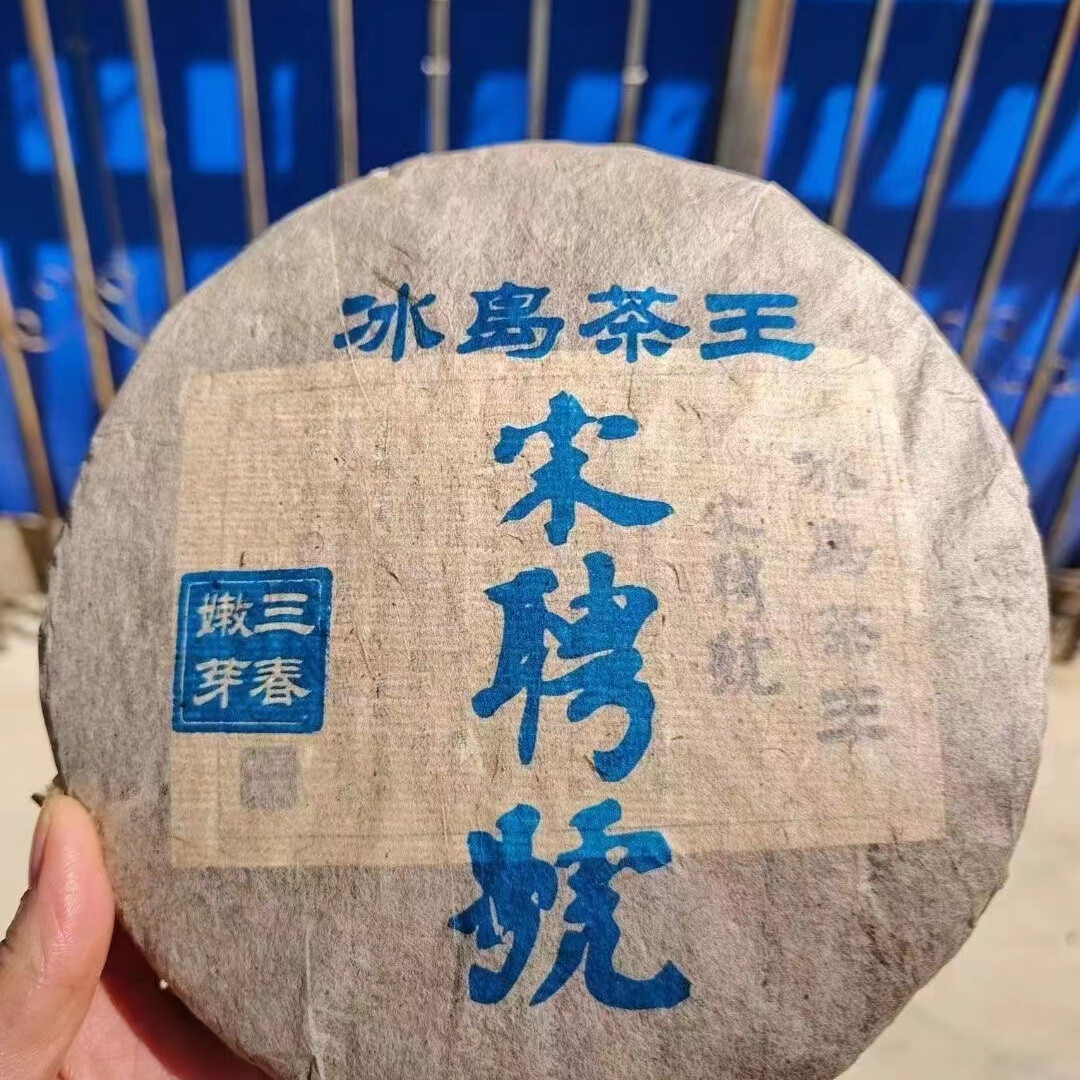 冰島茶王
宋聘號
三春
嫩芽
冰島茶王
宋聘號